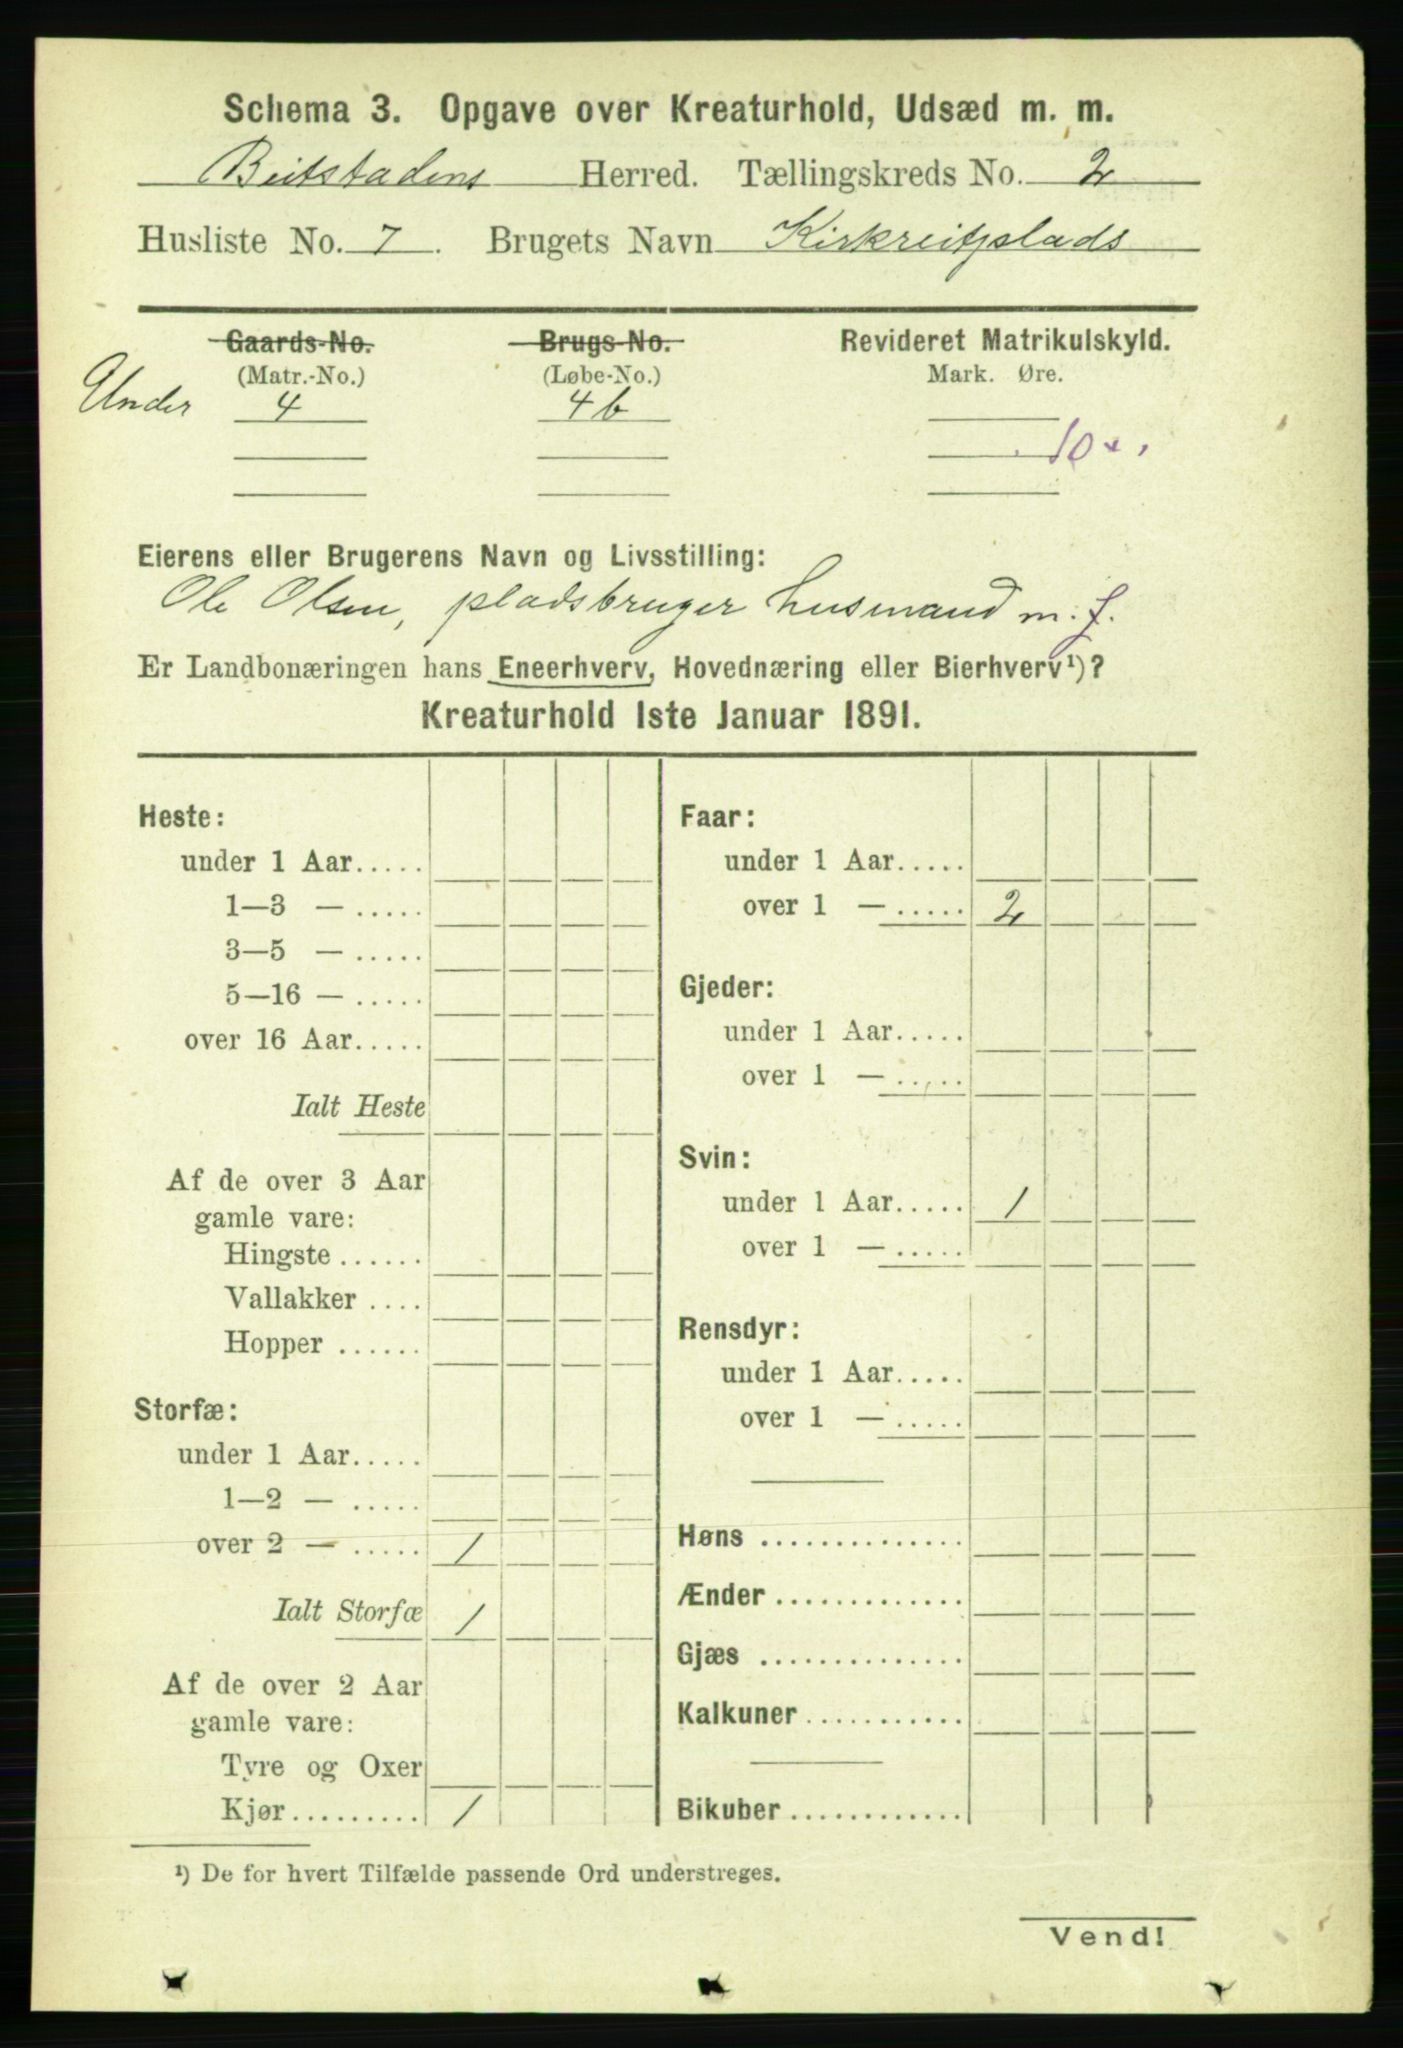 Schema 3. Opgave over Kreaturhold, Udsæd m. m.
Beitstadens Herred. Tællingskreds No. 2
Husliste No. 7. Brugets Navn Kirkreitplads
Gaards-No. Brugs-No. Revideret Matrikulskyld.
(Matr.-No.) (Løbe-No.) Mark. Øre.
Under 4 4b
10
Eierens eller Brugerens Navn og Livsstilling:
Ole Olsen, pladsbruger husmand m. j.
Er Landbonæringen hans Eneerhverv, Hovednæring eller Bierhverv¹)?
Kreaturhold 1ste Januar 1891.
Heste:
under 1 Aar.....
1—3 — .....
3—5 — .....
5—16 — .....
over 16 Aar.....
Ialt Heste
Af de over 3 Aar
gamle vare:
Hingste ......
Vallakker ....
Hopper ......
Storfæ:
under 1 Aar.....
1—2 — .....
over 2 — ..... 1
Ialt Storfæ 1
Af de over 2 Aar
gamle vare:
Tyre og Oxer
Kjør......... 1
Faar:
under 1 Aar.....
over 1 — ..... 2
Gjeder:
under 1 Aar.....
over 1 — .....
Svin:
under 1 Aar..... 1
over 1 — .....
Rensdyr:
under 1 Aar.....
over 1 — .....
Høns ..............
Ænder .............
Gjæs ..............
Kalkuner ...........
Bikuber .............
¹) De for hvert Tilfælde passende Ord understreges.
Vend!